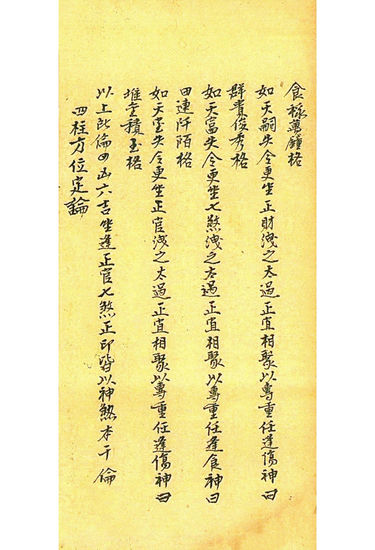 食祿萬鍾格
如天嗣失令更坐正財洩之太過正宜相聚以專重任逢傷神曰
群貴俊秀格
如天富失令更坐七煞洩之太過正宜相聚以專重任逢食神曰
田連阡陌格
如天寶失令更坐正官洩之太過正宜相聚以專重任逢傷神曰
堆金積玉格
以上所論四凶六吉坐逢正官七煞正印皆以神煞本干論
四柱方位定論